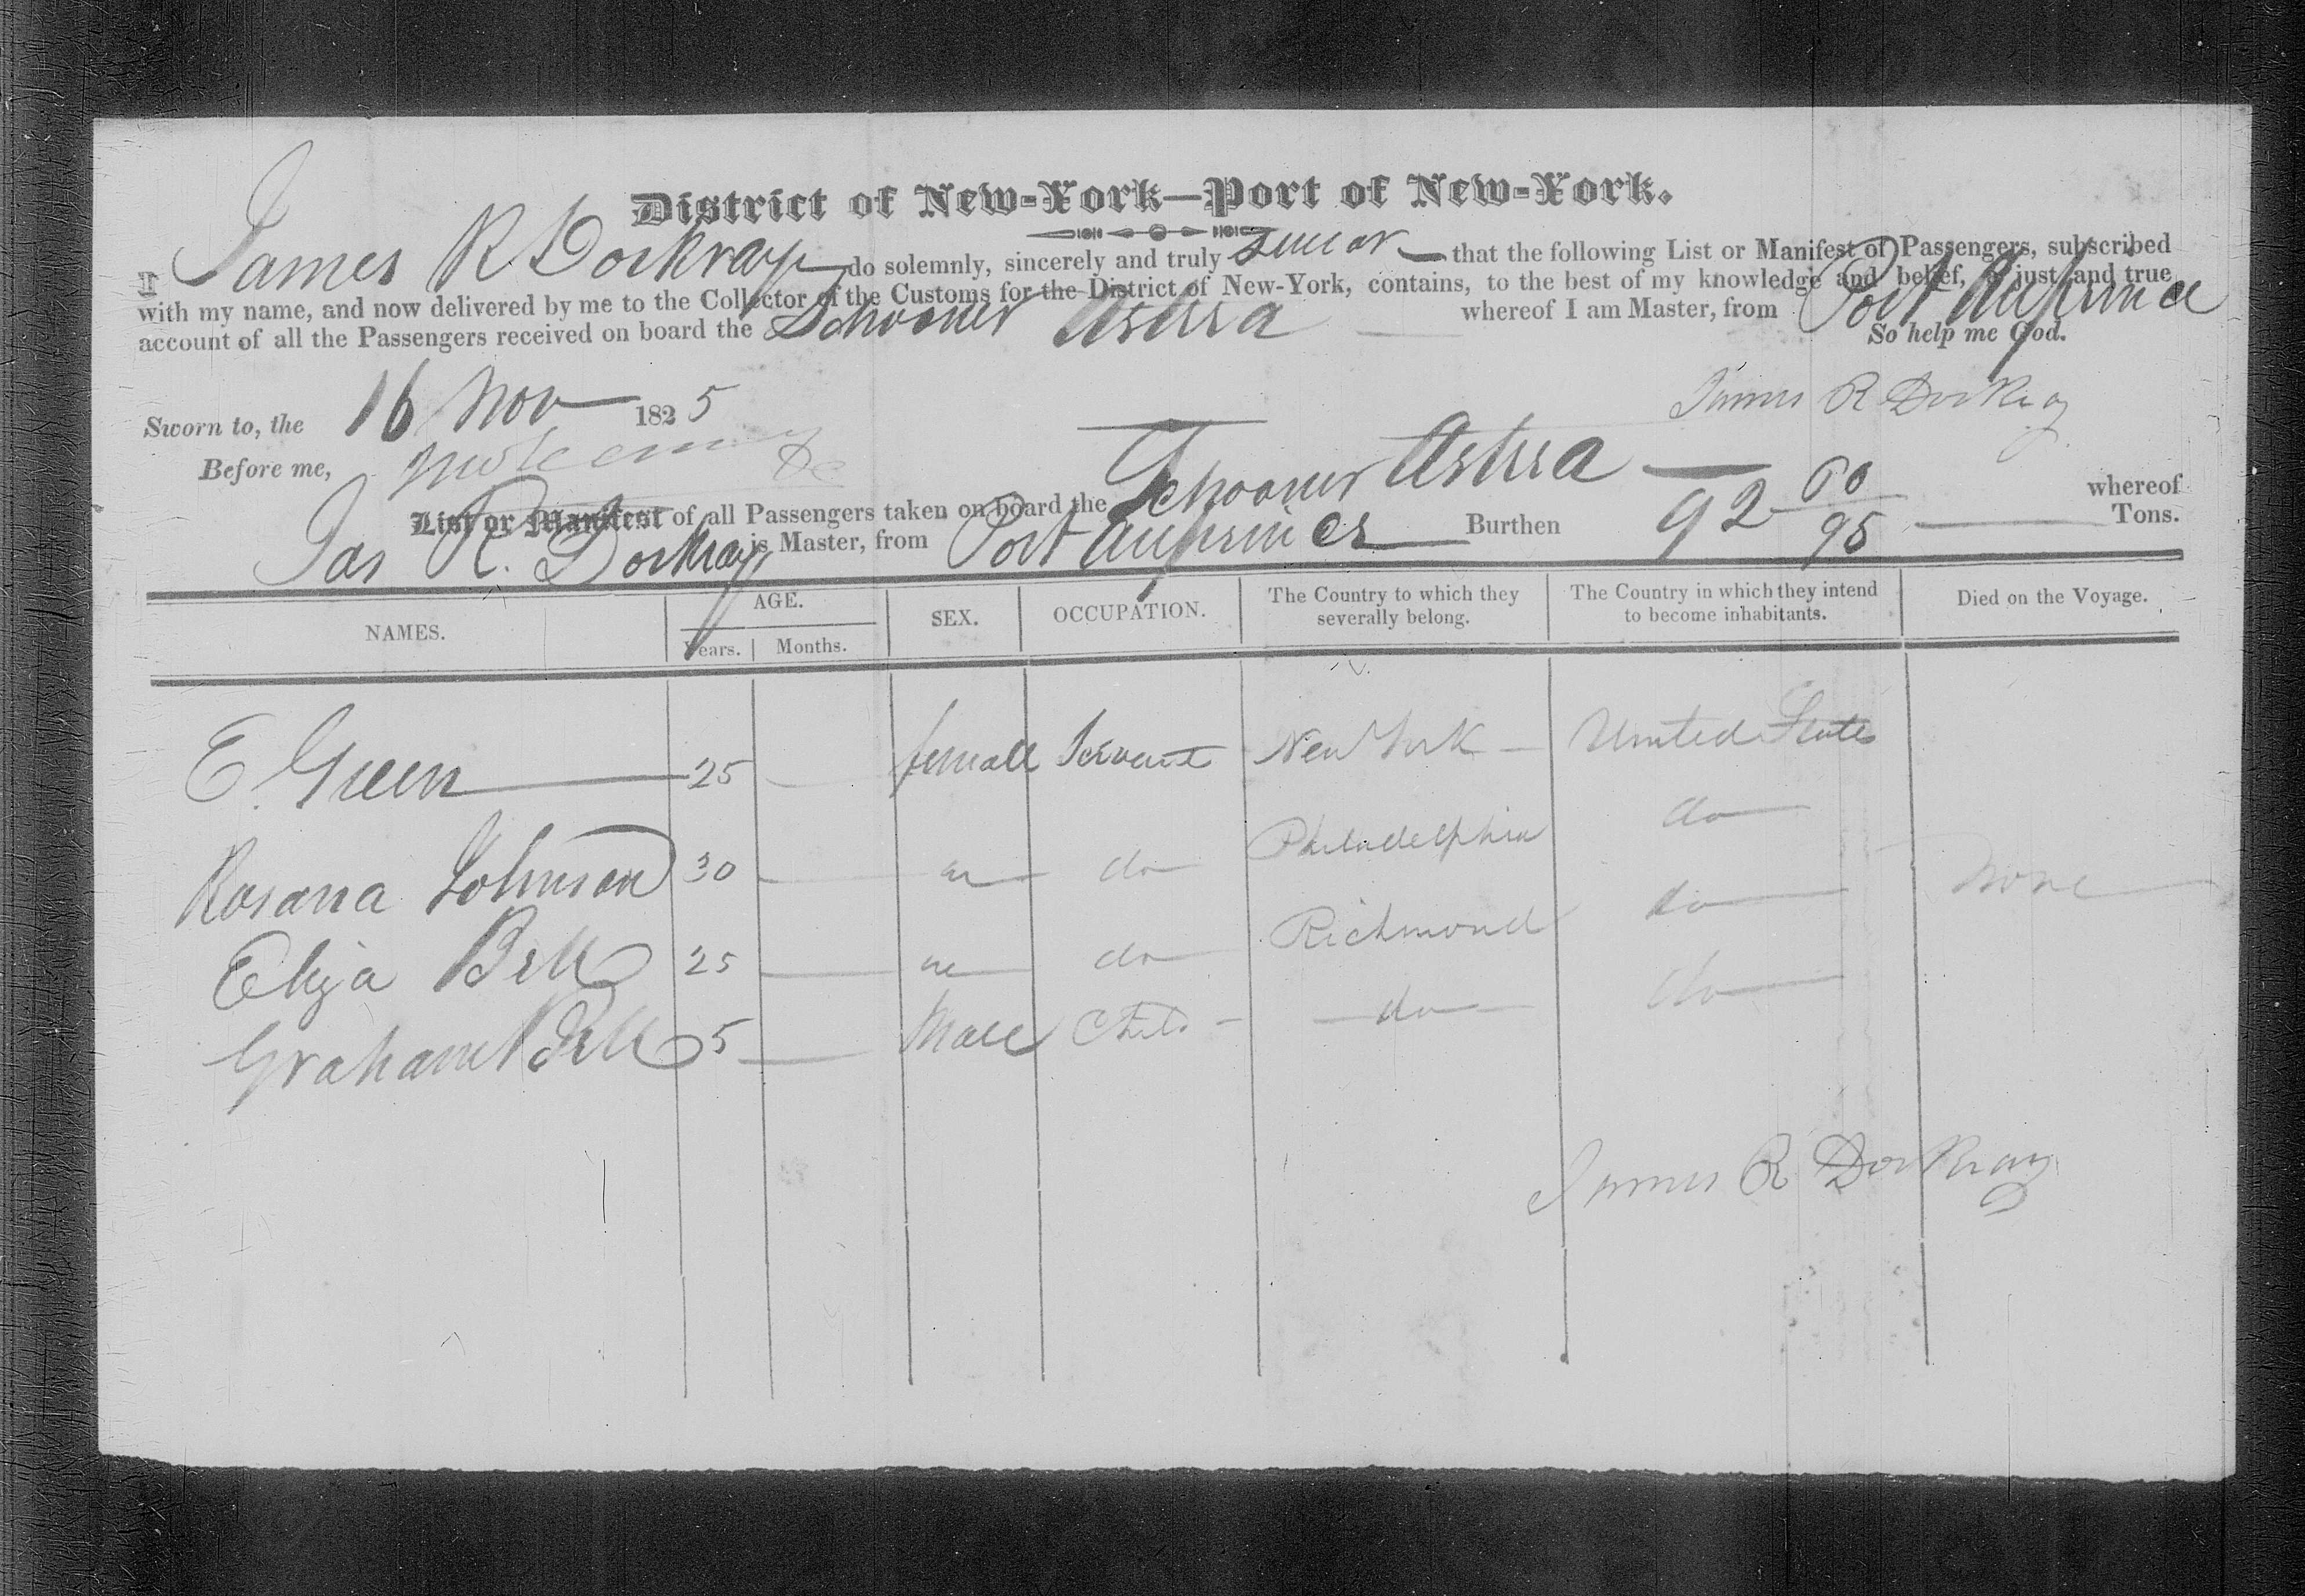 District of New-York—Port of New-York.
I James R Dockray do solemnly, sincerely and truly swear that the following List or Manifest of Passengers, subscribed
with my name, and now delivered by me to the Collector of the Customs for the District of New-York, contains, to the best of my knowledge and belief, a just and true
account of all the Passengers received on board the Schooner Astrea whereof I am Master, from Port au prince
So help me God.
Sworn to, the 16 Nov 1825
James R Dockray
Before me,
List or Manifest of all Passengers taken on board the Schooner Astrea whereof
Jas R. Dockray is Master, from Port au prince Burthen 92 60/95 Tons.
NAMES. AGE. SEX. OCCUPATION. The Country to which they severally belong. The Country in which they intend to become inhabitants. Died on the Voyage.
Years. Months.
E. Green 25 female Servant New York United States
Rosana Johnson 30 do Philadelphia do
Eliza Bell 25 do Richmond do None
Graham Bell 5 Male Child do do
James R Dockray